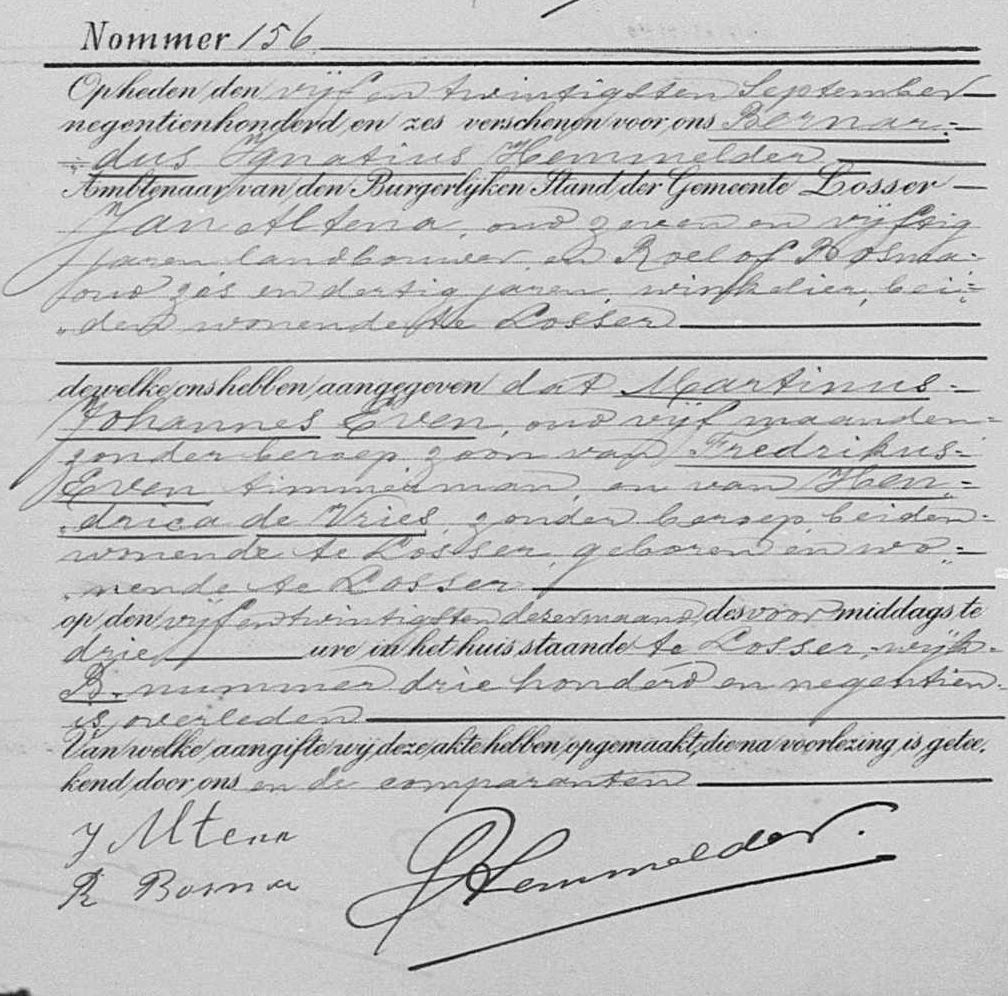 Nommer 156
Op heden den vijf en twintigsten September
negentienhonderd en zes verschenen voor ons Bernar-
dus Ignatius Hemmelder
Ambtenaar van den Burgerlijken Stand der Gemeente Losser
Jan Altena, oud zeven en vijftig
jaren, landbouwer, en Roelof Bosma
oud zes en dertig jaren, winkelier, bei-
den wonende te Losser
dewelke ons hebben aangegeven dat Martinus-
Johannes Even, oud vijf maanden
zonder beroep, zoon van Fredrikus-
Even timmerman, en van Hen-
drica de Vries, zonder beroep, beiden
wonende te Losser, geboren en wo-
nende te Losser
op den vijf en twintigsten dezer maand, des voor middags te
drie ure in het huis staande te Losser, wijk-
B. nummer drie honderd en negentien
is overleden
Van welke aangifte wij deze akte hebben opgemaakt, die na voorlezing is getee-
kend door ons en de comparanten
J Altena
R Bosma
Hemmelder.